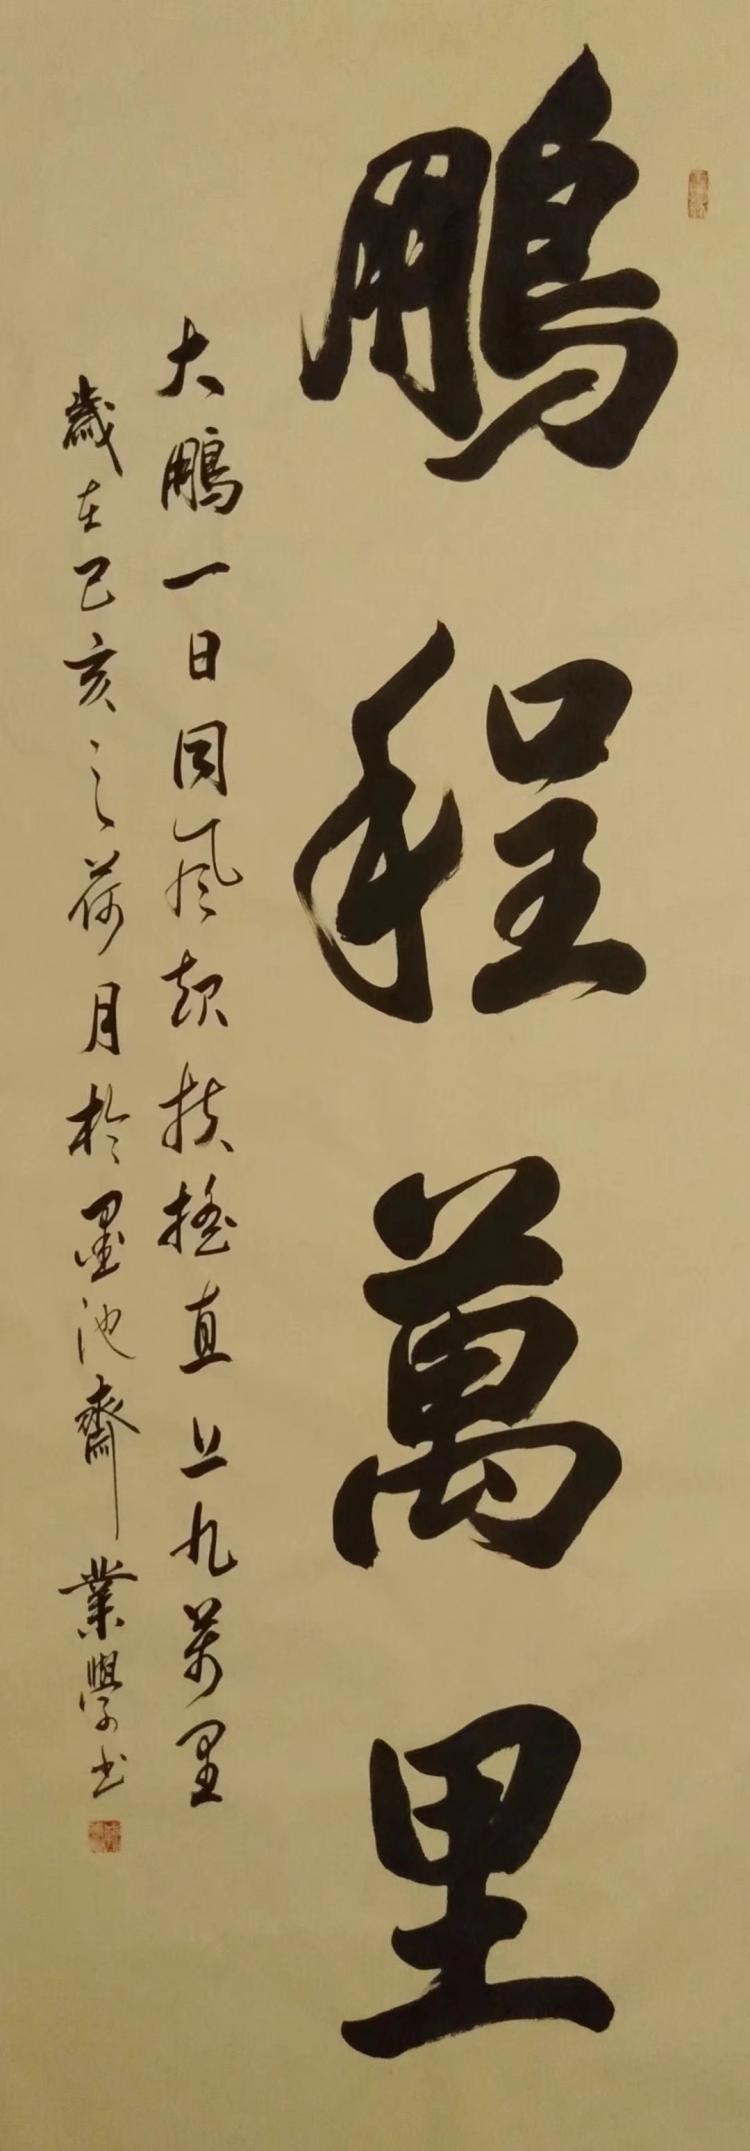 鵬程萬里
大鵬一日同風起扶搖直上九萬里
歲在己亥之荷月於墨池齋業學書